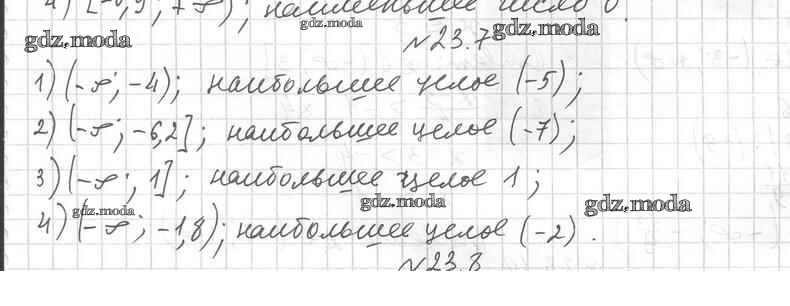 4) [-0,9; +∞); наименьшее число 0.
gdz.moda gdz.moda gdz.moda
№23.7
1) (-∞; -4); наибольшее целое (-5);
2) (-∞; -6,2]; наибольшее целое (-7);
3) (-∞; 1]; наибольшее целое 1;
gdz.moda gdz.moda gdz.moda
4) (-∞; -1,8); наибольшее целое (-2).
№23.8